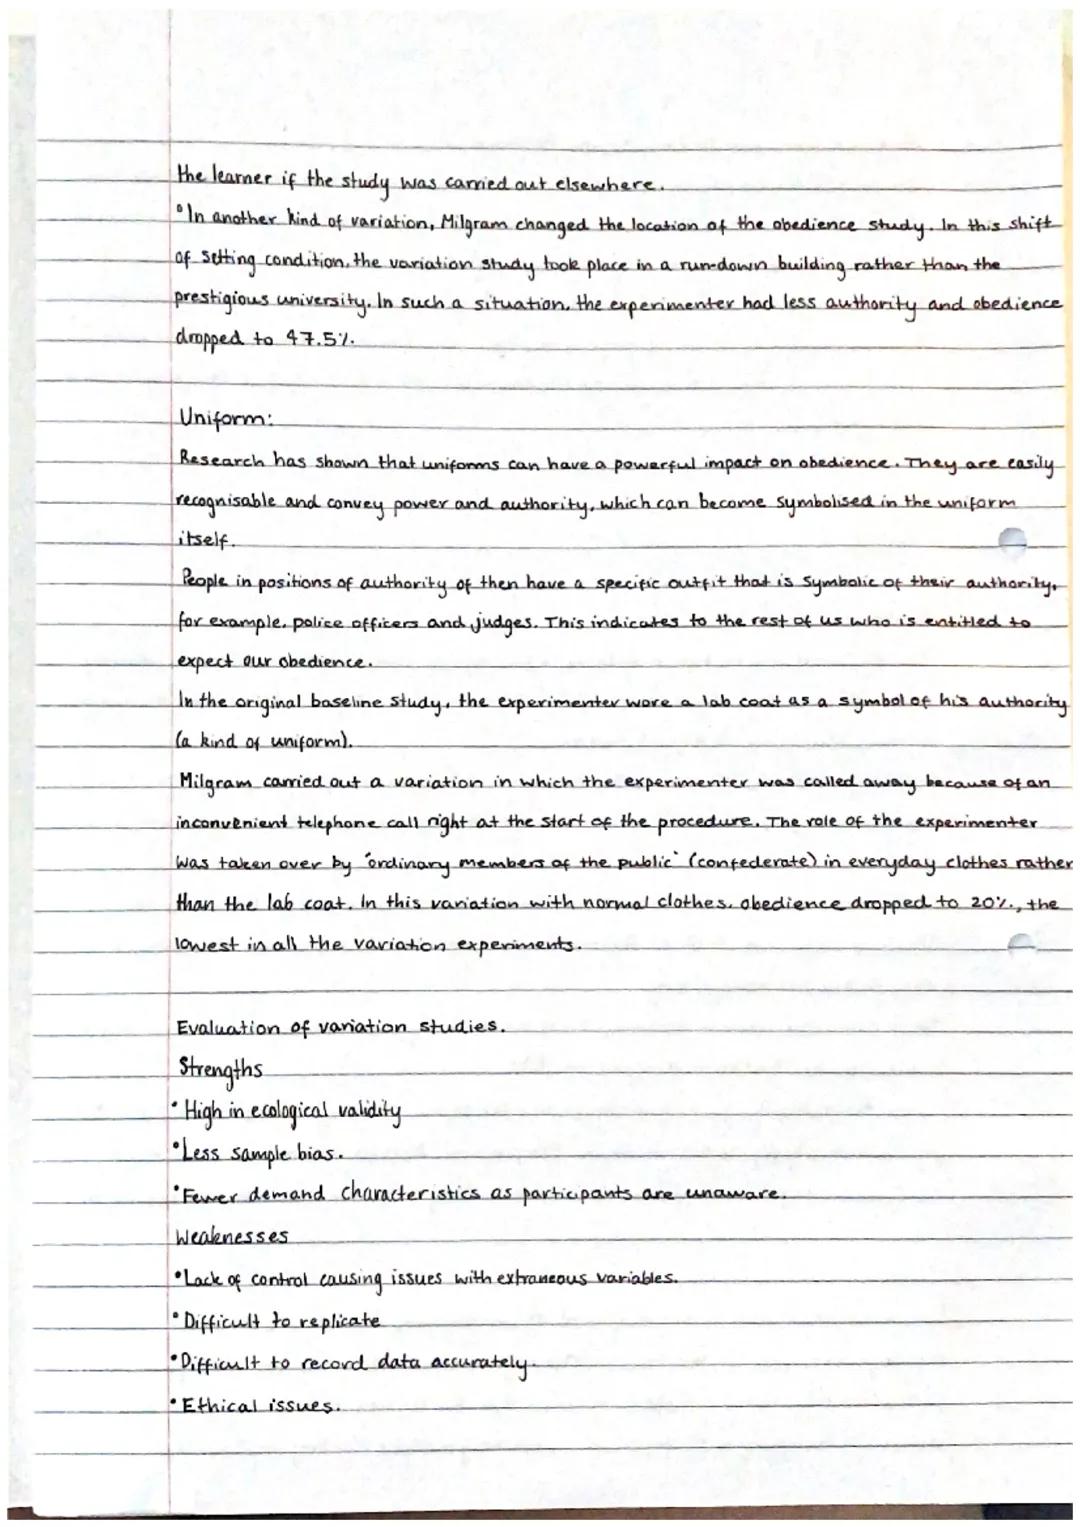 the learner if the study was carried out elsewhere.
•In another kind of variation, Milgram changed the location of the obedience study. In this shift
of setting condition, the variation study took place in a run-down building rather than the
prestigious university. In such a situation, the experimenter had less authority and obedience
dropped to 47.5%.
Uniform:
Research has shown that uniforms can have a powerful impact on obedience. They are easily
recognisable and convey power and authority, which can become symbolised in the uniform
itself.
People in positions of authority of then have a specific outfit that is symbolic of their authority,
for example, police officers and judges. This indicates to the rest of us who is entitled to
expect our obedience.
In the original baseline study, the experimenter wore a lab coat as a symbol of his authority
(a kind of uniform).
Milgram carried out a variation in which the experimenter was called away because of an
inconvenient telephone call right at the start of the procedure. The role of the experimenter
was taken over by 'ordinary members of the public' (confederate) in everyday clothes rather
than the lab coat. In this variation with normal clothes, obedience dropped to 20%., the
lowest in all the variation experiments.
Evaluation of variation studies.
Strengths
•High in ecological validity
•Less sample bias.
•Fewer demand characteristics as participants are unaware.
Weaknesses
•Lack of control causing issues with extraneous variables.
•Difficult to replicate
•Difficult to record data accurately.
•Ethical issues.